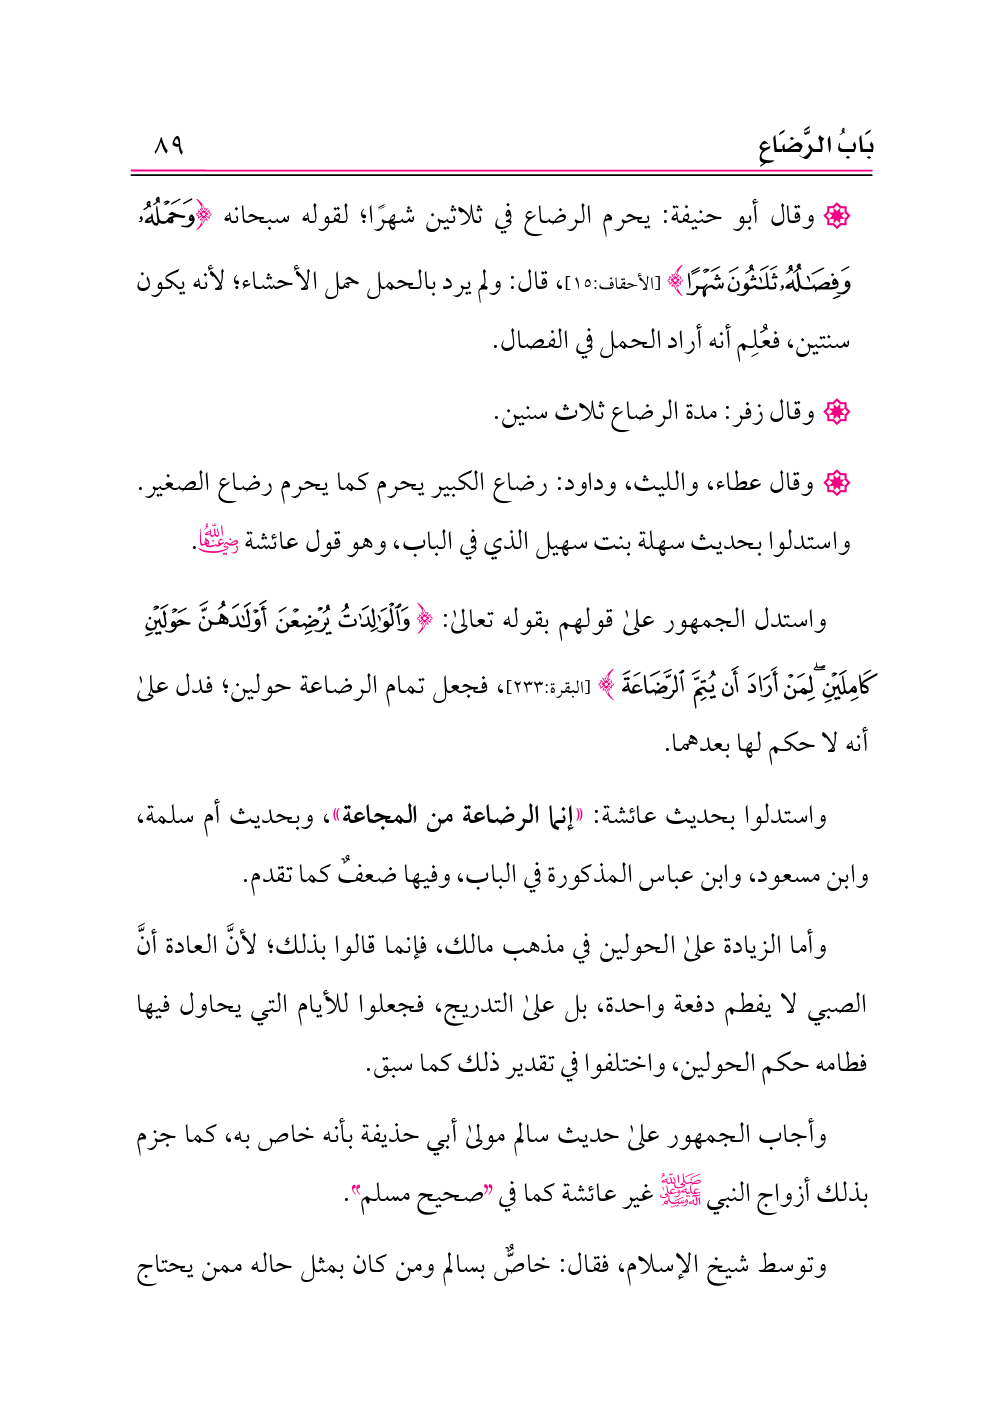 بَابُ الرَّضَاعِ ٨٩
وقال أبو حنيفة: يحرم الرضاع في ثلاثين شهرًا؛ لقوله سبحانه ﴿وَحَمْلُهُۥ
وَفِصَـٰلُهُۥ ثَلَـٰثُونَ شَهْرًا﴾ [الأحقاف:١٥]، قال: ولم يرد بالحمل حمل الأحشاء؛ لأنه يكون
سنتين، فعُلِم أنه أراد الحمل في الفصال.
وقال زفر: مدة الرضاع ثلاث سنين.
وقال عطاء، والليث، وداود: رضاع الكبير يحرم كما يحرم رضاع الصغير.
واستدلوا بحديث سهلة بنت سهيل الذي في الباب، وهو قول عائشة رضي الله عنها.
واستدل الجمهور علىٰ قولهم بقوله تعالىٰ: ﴿وَٱلْوَٰلِدَٰتُ يُرْضِعْنَ أَوْلَـٰدَهُنَّ حَوْلَيْنِ
كَامِلَيْنِ ۖ لِمَنْ أَرَادَ أَن يُتِمَّ ٱلرَّضَاعَةَ﴾ [البقرة:٢٣٣]، فجعل تمام الرضاعة حولين؛ فدل علىٰ
أنه لا حكم لها بعدهما.
واستدلوا بحديث عائشة: «إنما الرضاعة من المجاعة»، وبحديث أم سلمة،
وابن مسعود، وابن عباس المذكورة في الباب، وفيها ضعفٌ كما تقدم.
وأما الزيادة علىٰ الحولين في مذهب مالك، فإنما قالوا بذلك؛ لأنَّ العادة أنَّ
الصبي لا يفطم دفعة واحدة، بل علىٰ التدريج، فجعلوا للأيام التي يحاول فيها
فطامه حكم الحولين، واختلفوا في تقدير ذلك كما سبق.
وأجاب الجمهور علىٰ حديث سالم مولىٰ أبي حذيفة بأنه خاص به، كما جزم
بذلك أزواج النبي ﷺ غير عائشة كما في "صحيح مسلم".
وتوسط شيخ الإسلام، فقال: خاصٌّ بسالم ومن كان بمثل حاله ممن يحتاج